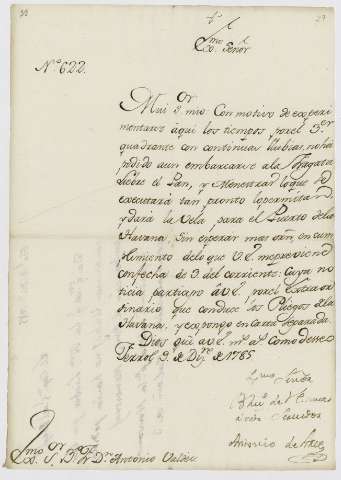 29
Exmo Señor
No. 622.
Mui Sor mio. Con motivo de experi
mentarse aqui los tiempos, por el 3er
quadrante con continuas llubias, no ha
podido aun embarcarse a la Fragata
Liebre el Pan, y Menestras lo que se
executará tan pronto lo permita
y dará la Vela, para el Puerto de la
Havana, sin esperar mas orñ, en cum
plimiento de lo que V.E. me previene
con fecha de 3 del corriente: Cuya no
ticia participo a V.E. por el Extraor
dinario, que conduce los Pliegos de la
Havana, y expongo en Carta separada.
Dios gũe a V.E. ms. as. como deseo
Ferrol 9 de Dizre de 1785.
Exmo Señor
Servidor
Antonio de Arce
Exmo Sor Bo. Fr. Dn. Antonio Valdes